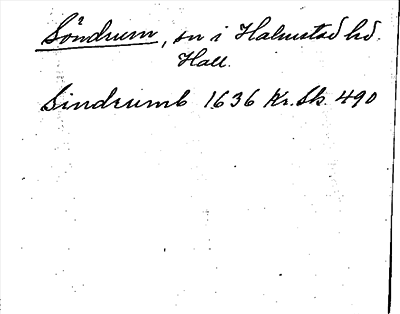 Söndrum, sn i Halmstad hd.
Hall.
Sindrumb 1636 Kr. Sk. 490